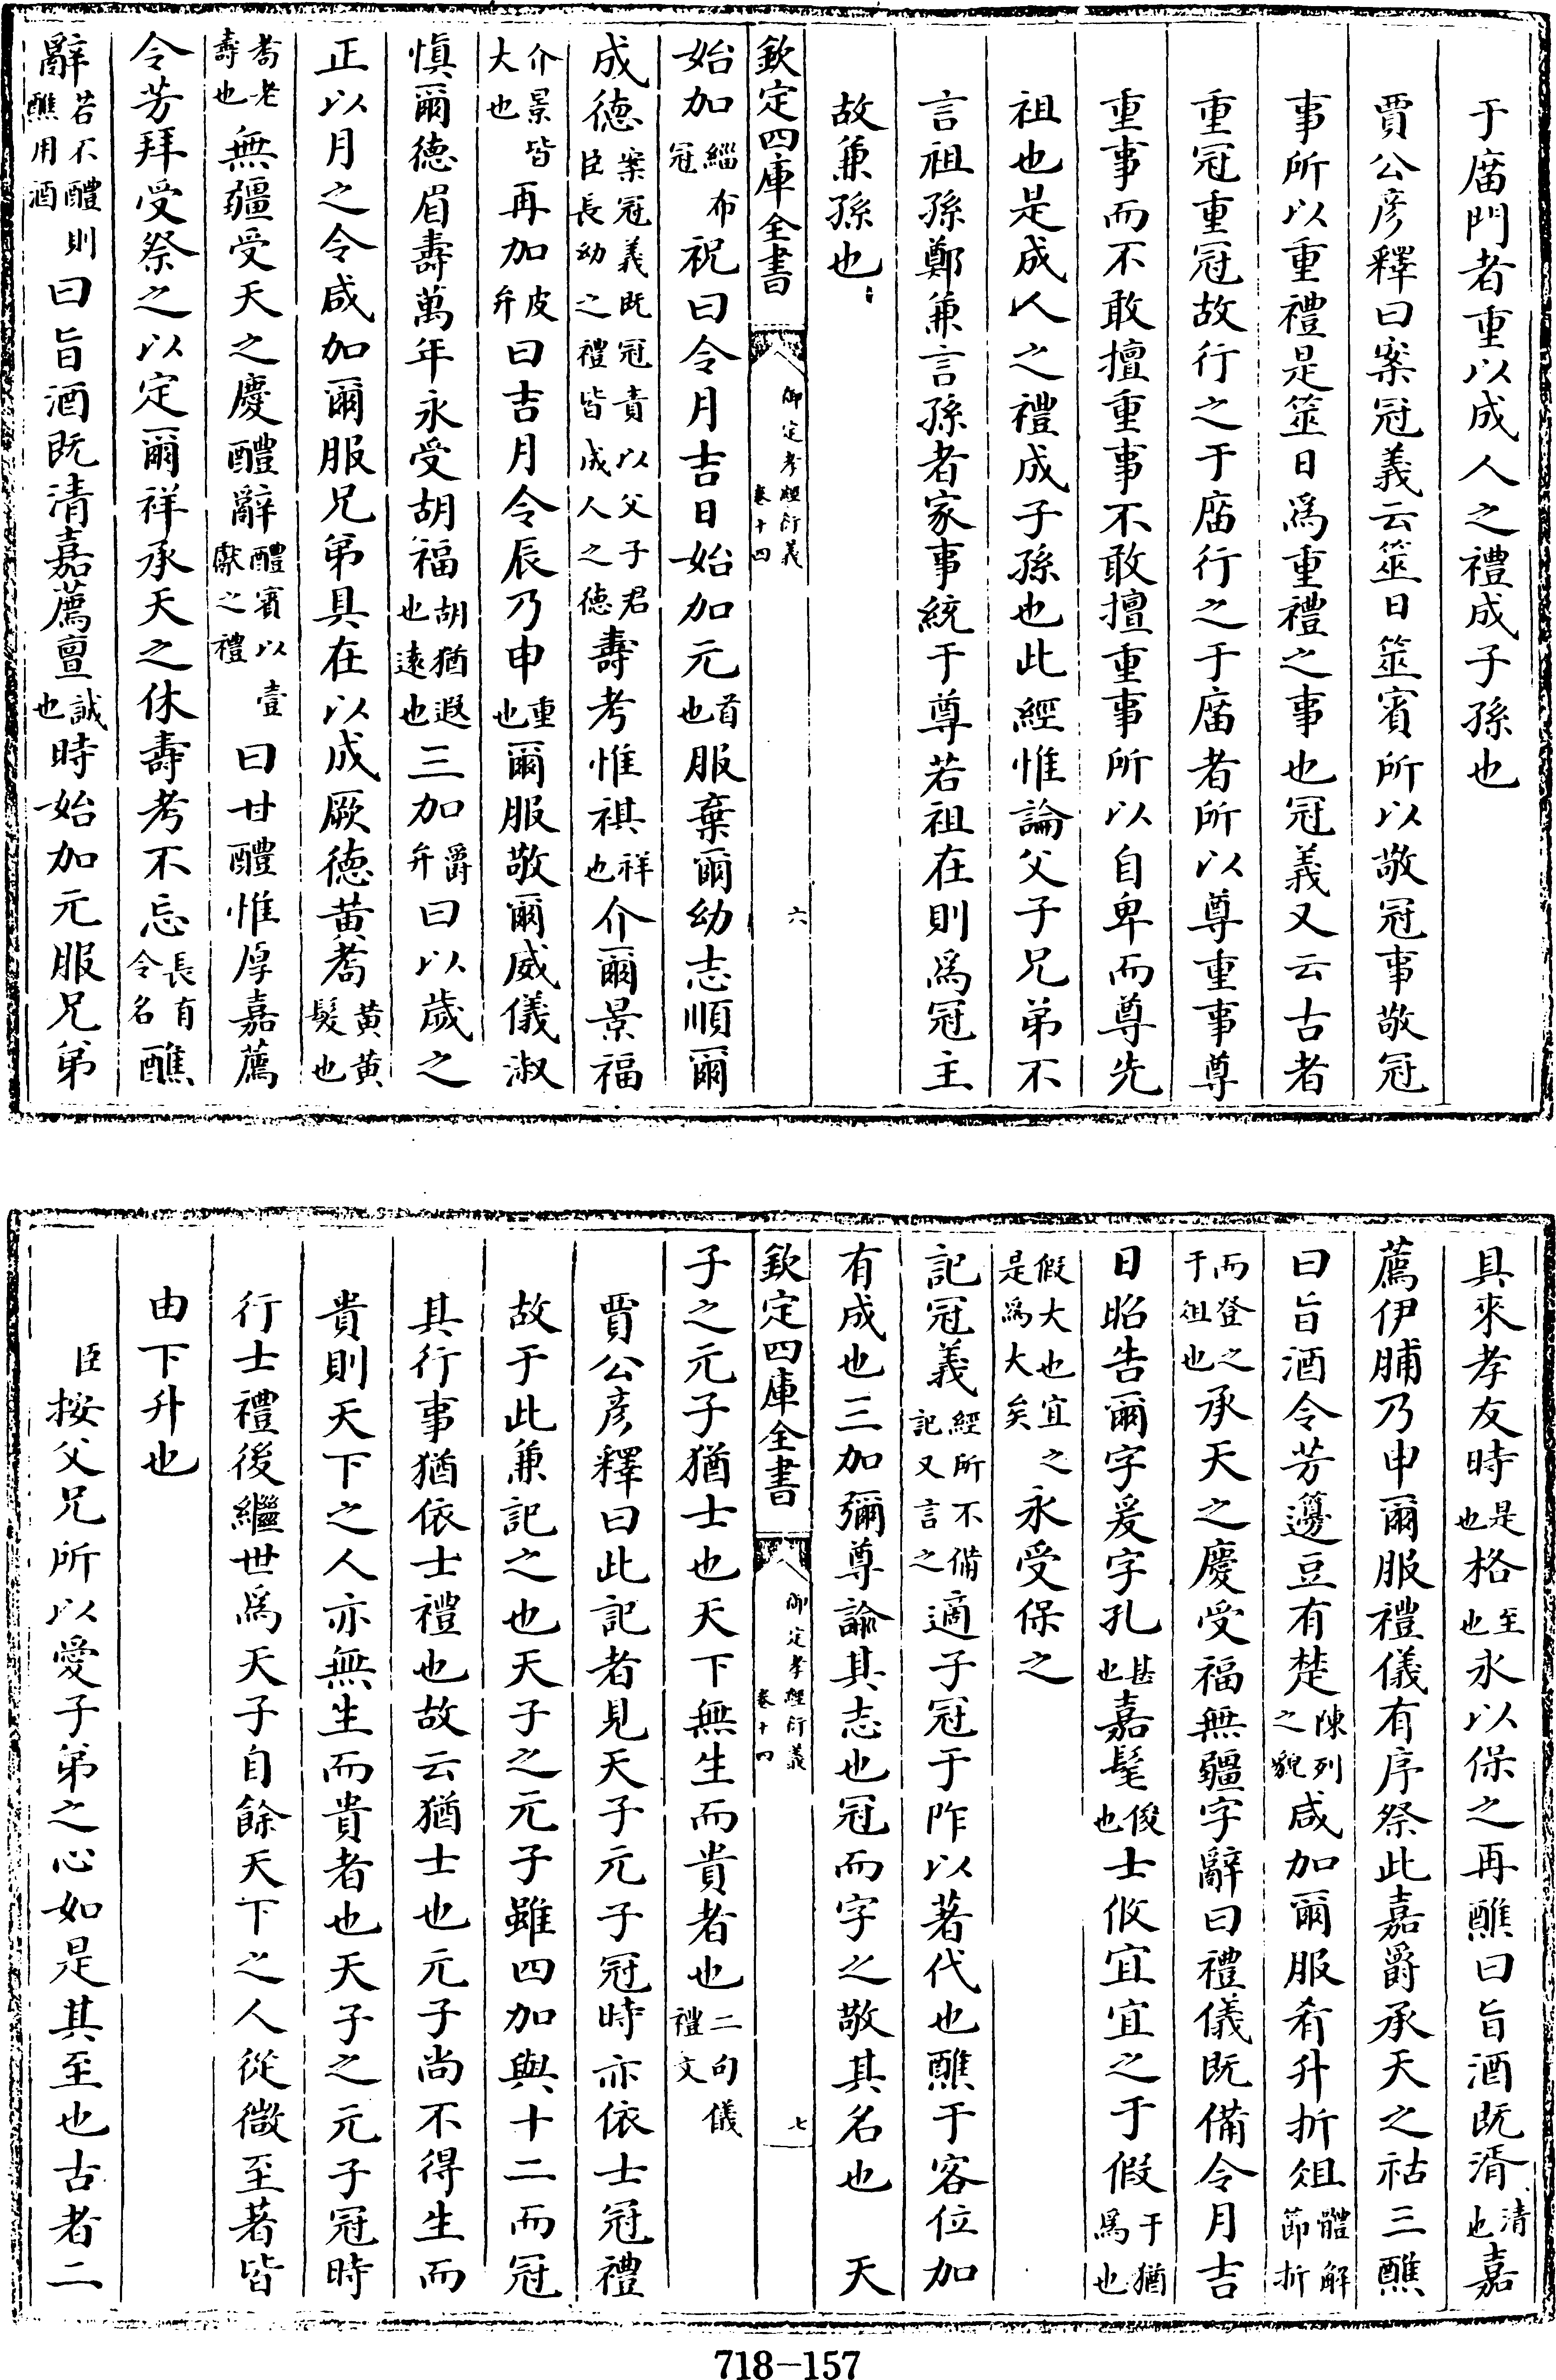 于庿門者重以成人之禮成子孫也
賈公彦釋曰案冠義云筮日筮賓所以敬冠事敬冠
事所以重禮是筮日爲重禮之事也冠義又云古者
重冠重冠故行之于庿行之于庿者所以尊重事尊
重事而不敢擅重事不敢擅重事所以自卑而尊先
祖也是成人之禮成子孫也此經惟論父子兄弟不
言祖孫鄭兼言孫者家事統于尊若祖在則爲冠主
故兼孫也
欽定四庫全書 御定孝經衍義 卷十四 六
始加緇布冠祝曰令月吉日始加元首也服棄爾幼志順爾
成德案冠義既冠責以父子君臣長幼之禮皆成人之德壽考惟祺祥也介爾景福
介景皆大也再加皮弁曰吉月令辰乃申重也爾服敬爾威儀淑
慎爾德眉壽萬年永受胡福胡猶遐也遠也三加爵弁曰以歲之
正以月之令咸加爾服兄弟具在以成厥德黄耉黄黄髮也
耉老壽也無疆受天之慶醴辭醴賓以壹獻之禮曰甘醴惟厚嘉薦
令芳拜受祭之以定爾祥承天之休壽考不忘長有令名醮
辭若不醴則醮用酒曰旨酒既清嘉薦亶誠也時始加元服兄弟
具來孝友時是也格至也永以保之再醮曰旨酒既湑清也嘉
薦伊脯乃申爾服禮儀有序祭此嘉爵承天之祜三醮
曰旨酒令芳籩豆有楚陳列之貌咸加爾服肴升折俎體解節折
而登之于俎也承天之慶受福無疆字辭曰禮儀既備令月吉
日昭告爾字爰字孔甚也嘉髦俊也士攸宜宜之于假于猶爲也
假大也宜之是爲大矣永受保之
記冠義經所不備記又言之適子冠于阼以著代也醮于客位加
有成也三加彌尊諭其志也冠而字之敬其名也 天
欽定四庫全書 御定孝經衍義 卷十四 七
子之元子猶士也天下無生而貴者也二句儀禮文
賈公彦釋曰此記者見天子元子冠時亦依士冠禮
故于此兼記之也天子之元子雖四加與十二而冠
其行事猶依士禮也故云猶士也元子尚不得生而
貴則天下之人亦無生而貴者也天子之元子冠時
行士禮後繼世爲天子自餘天下之人從微至著皆
由下升也
臣按父兄所以愛子弟之心如是其至也古者二
718-157